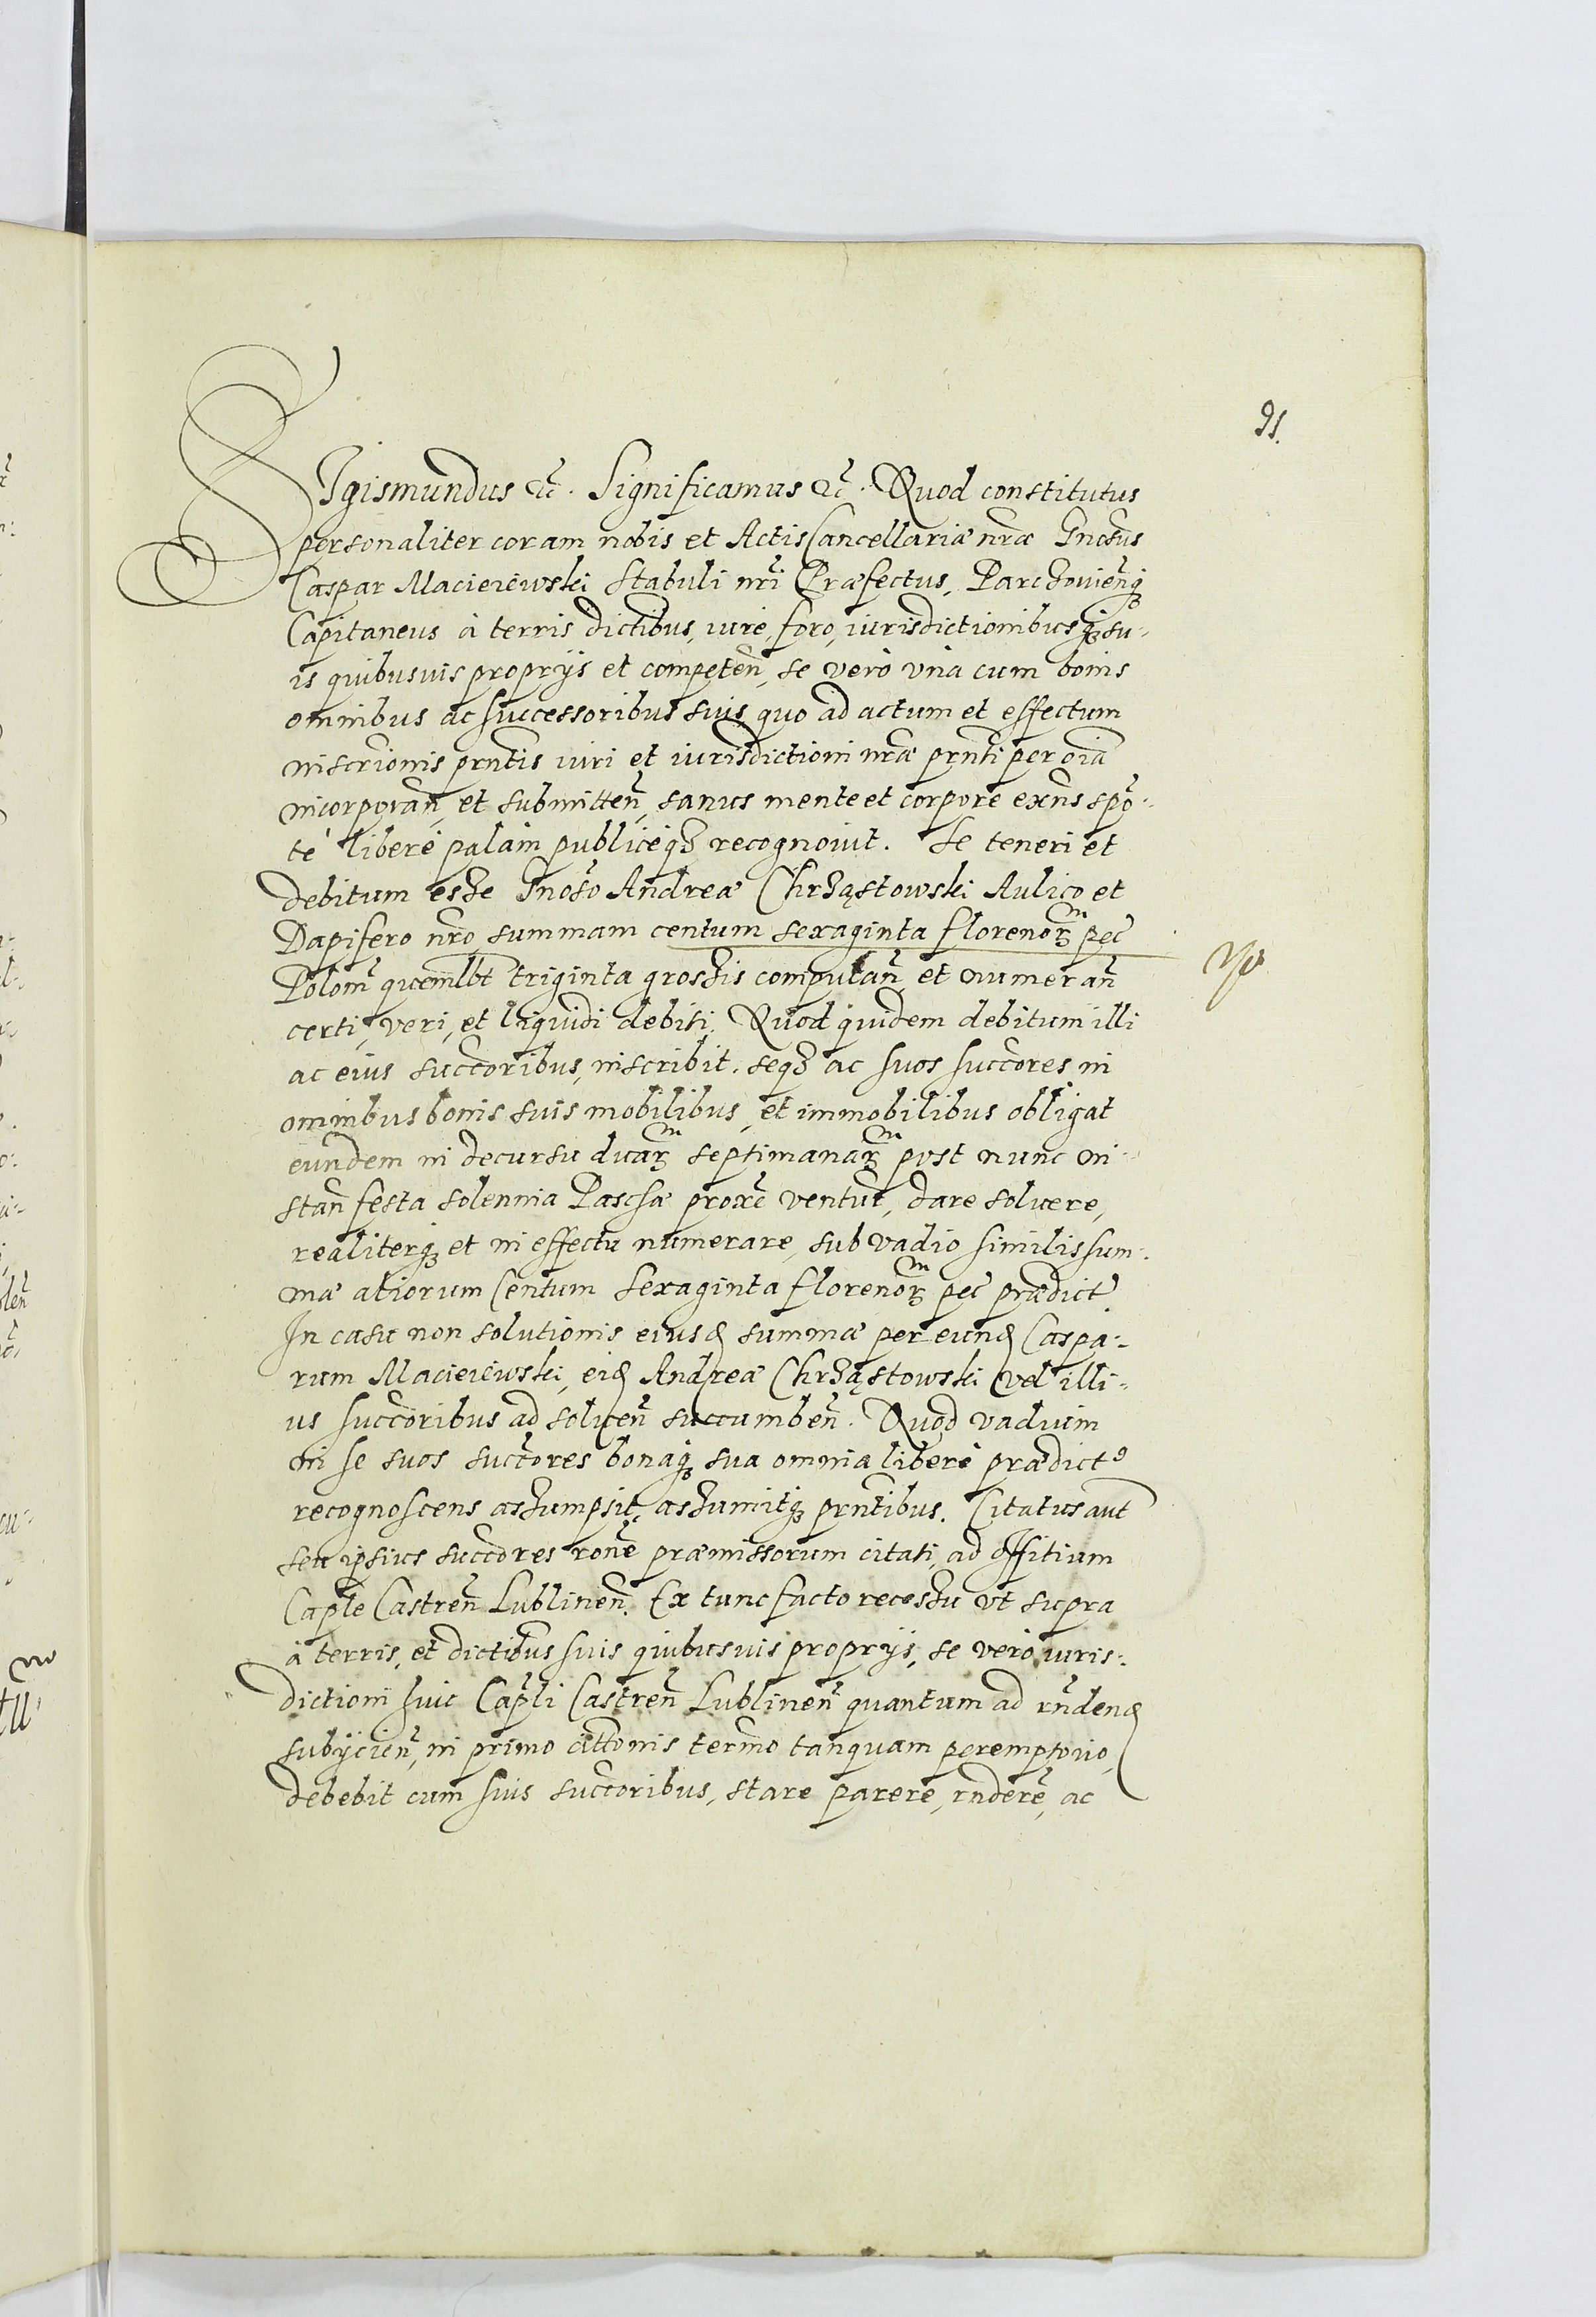 91.
SIgismundus &c̃. Significamus &c̃. Quod constitutus
personaliter coram nobis et Actis Cancellariæ nr̃æ Gnosus
Caspar Macieiewski Stabuli nr̃i Præfectus, Parczouien̄q₃
Capitaneus à terris dictibus, iure, foro, iurisdictionibusq₃ su-
is quibusuis proprijs et competeñ, se vero vna cum bonis
omnibus ac successoribus suis quo ad actum et effectum
inscriõnis pñtis iuri et iurisdictioni nr̃æ prñti per oĩa
incorporañ, et submitteñ, sanus mente et corpore exñs spõ-
te libere palam publiceq₃ recognouit. Se teneri et
debitum esse Gnoso Andreæ Chrząstowski Aulico et
Dapifero nr̃o summam centum sexaginta florenorᵐ pec̃
Polom̃ quemlbt triginta grossis computañ et numerañ
certi, veri, et liquidi debiti. Quod quidem debitum illi
ac eius succ̃oribus, inscribit, seq₃ ac suos succ̃ores in
omnibus bonis suis mobilibus, et immobilibus obligat
eundem in decursu duarᵐ septimanarᵐ post nunc in-
stañ festa solennia Paschæ proxẽ ventur̃, dare soluere,
realiterq₃ et in effectu numerare, sub vadio similis sum-
mæ aliorum Centum Sexaginta florenorᵐ pec̃ prædict
In casu non solutionis eiusd summæ per eund Caspa-
rum Macieiewski, eid Andreæ Chrząstowski vel illi-
us succ̃oribus ad solueñ succumbeñ. Quod vadium
in se suos succ̃ores bonaq₃ sua omnia libere prædict⁹
recognoscens assumpsit, assumitq₃ prñtibus. Citatus aut̃
seu ipsius succ̃ores rõne præmissorum citati, ad offitium
Cap̃le Castreñ Lublineñ. Ex tunc facto recessu vt supra
à terris, et dictibus suis quibusuis proprijs, se vero iuris-
dictioni huic Cap̃li Castreñ Lublineñ quantum ad rñdend
subijcieñ, in primo cittõnis termo tanquam peremptorio,
debebit cum suis succ̃oribus, stare parere, rñdere, ac